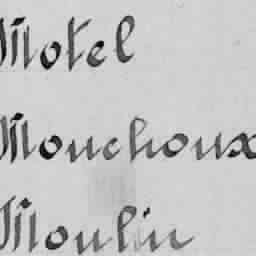 Motel
Mouchoux
Moulin